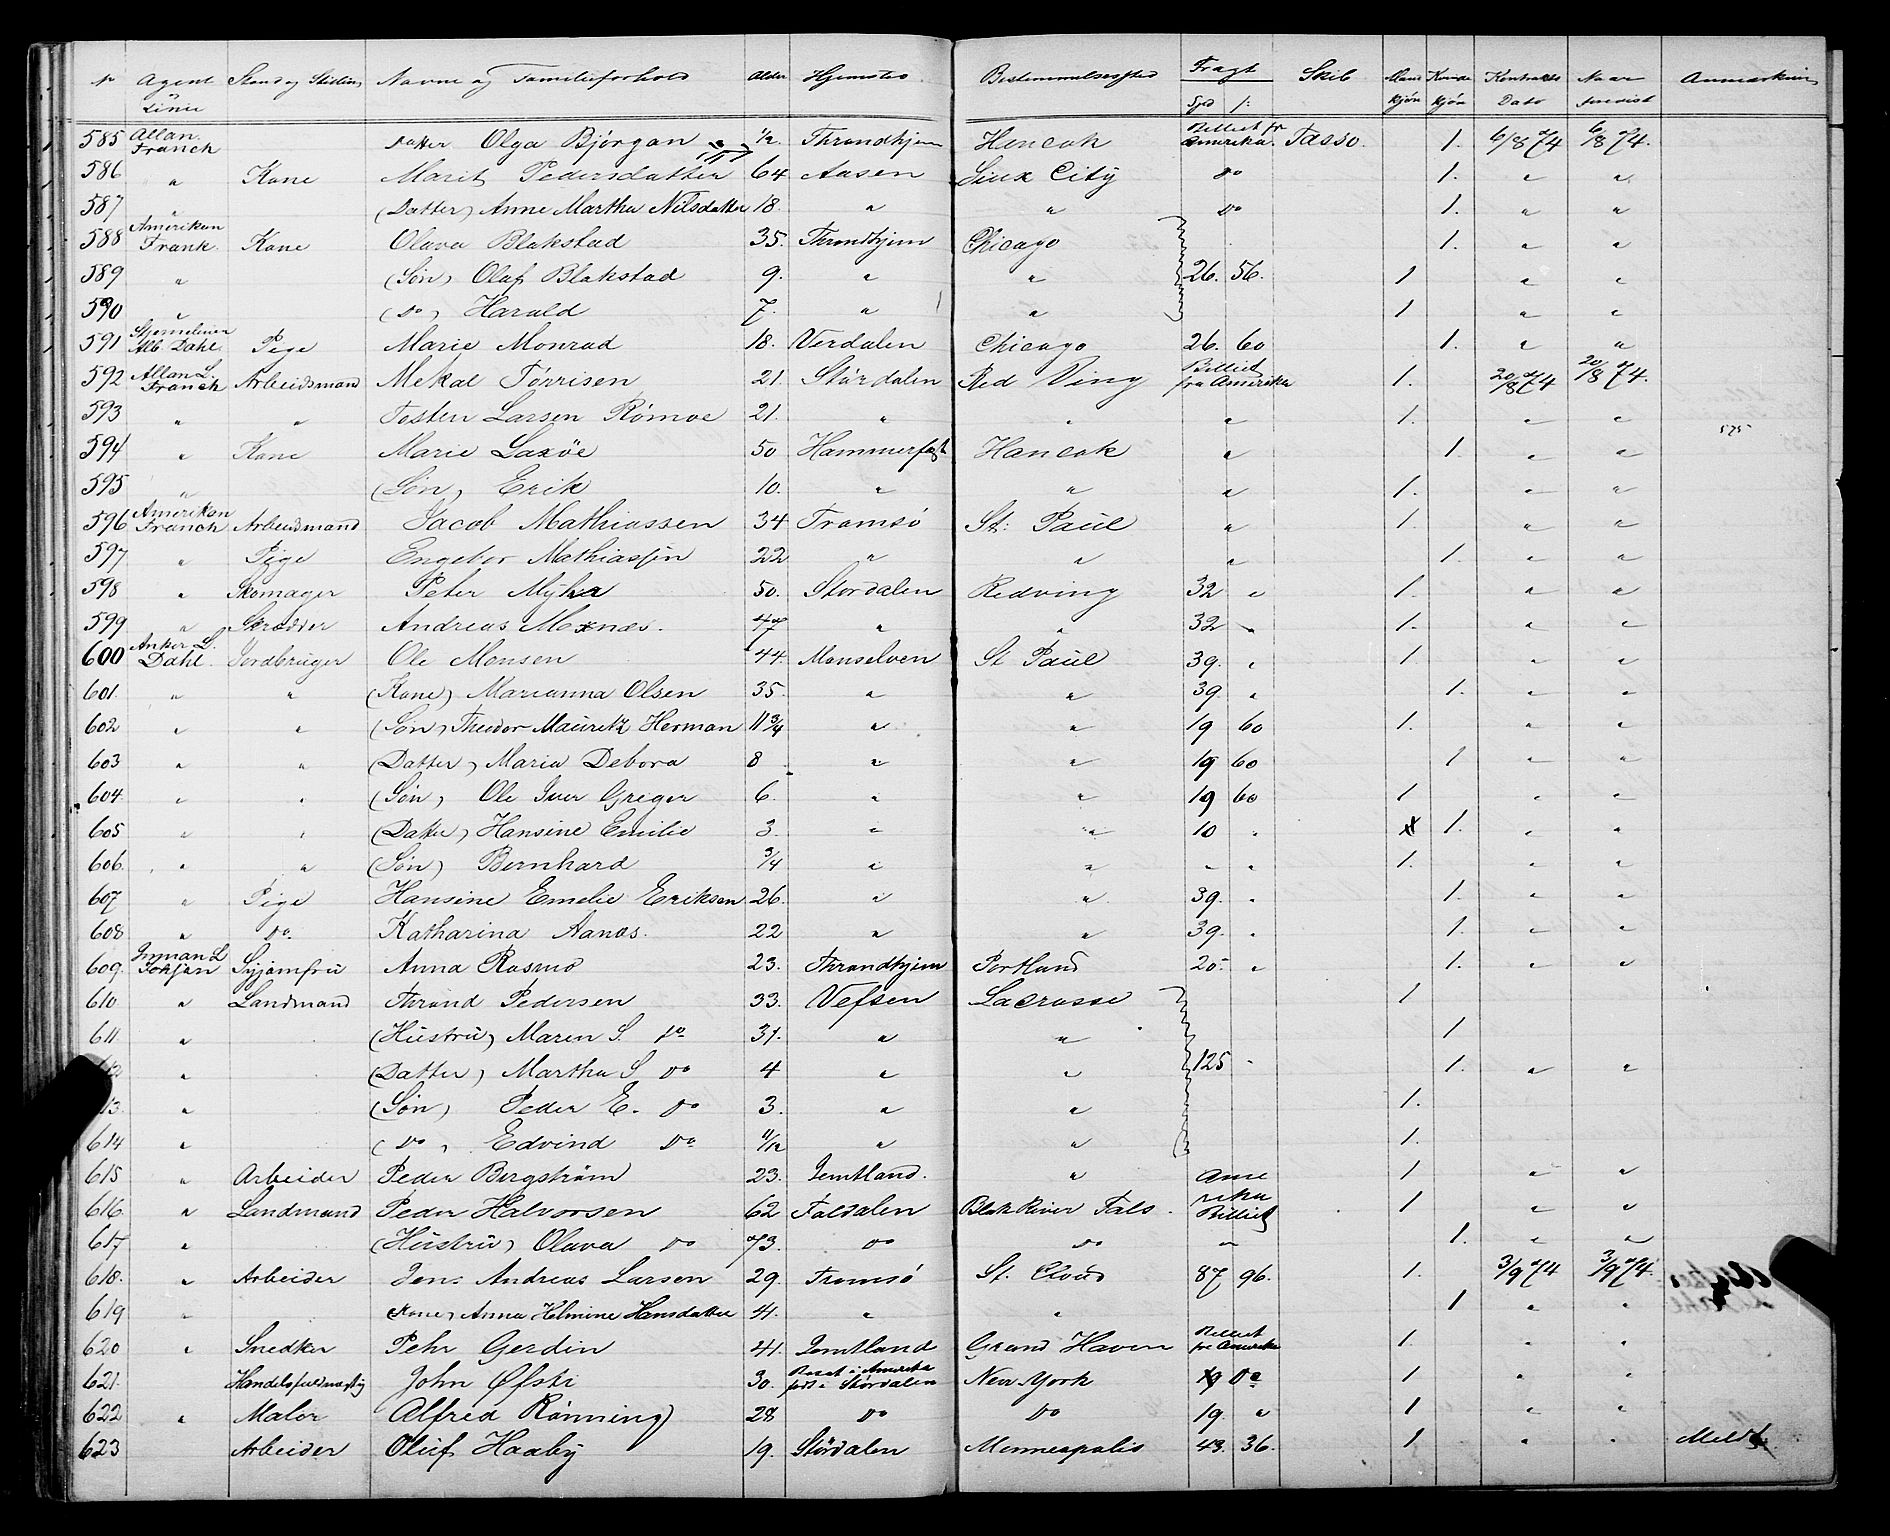 № Agent & Linie Stand og Stilling Navne og Familieforhold Alder Hjemsted Bestemmelsessted Fragt Spd /: Skib Mand kjøn Kvinde kjøn Kontrakts Dato Naar Anmærkning
585 Allan. Franck Datter Olga Bjørgan ½ Throndhjem Hancok Billiet fr Amerika. Tasso. 1. 6/8 74 6/8 74.
586 " Kone Marit Pedersdatter 64 Aasen Siux City do 1. " "
587 " (Datter) Anne Martha Nilsdatter 18. " " do 1. " "
588 Amerikan Frank. Kone Olava Blakstad 35. Throndhjem Chicago 1. " "
589 " (Søn) Olaf Blakstad 9. " " 26. 56. 1 " "
590 " (do) Harald 7. " " 1 " "
591 Alb. Dahl Pige Marie Monrad 18. Verdalen Chicago 26. 60 1. " "
592 Allan L. Franck Arbeidsmand Mekal Tørrisen 21. Størdalen Red Ving Billiet fra Amerika 1. 20/8 74 20/8 74.
593 " " Testen Larsen Rømoe 21. " " " 1. " "
594 " Kone Marie Laxöe 50 Hammerfest Hancok " 1. " " 575
595 " (Søn) Erik 10. " " " 1. " "
596 Amerikan Franck Arbeidsmand Jacob Mathiassen 34 Tromsø St: Paul " 1. " "
597 " Pige Engebor Mathiassen 22 " " " 1. " "
598 " Skomager Peter Myhr 50. Størdalen Redving 32 " 1. " "
599 " Skrædder Andreas Moxnæs. 47 " " 32 " 1. " "
600 Anker L. Dahl. Jordbruger Ole Monsen 44. Monselven St Paul 39. " 1. " "
601. " " (Kone) Marianna Olsen 35. " " 39. " 1. " "
602 " " (Søn) Theodor Mauritz Herman 11¾ " " 19 60 1. " "
603 " " (Datter) Maria Debora 8 " " 19 60 1 " "
604 " " (Søn) Ole Iver Griger 6. " " 19 60 1 " "
605 " " (Datter) Hansine Emilie 3. " " 10 " 1. " "
606. " " (Søn) Bernhard ¾ " " " " 1. " "
607 " Pige Hansine Emelie Eriksen 26. " " 39. " 1. " "
608 " do. Katharina Aanæs. 22 " " 39. " 1. " "
609. Inman L Syjomfru Anna Rasmo 23. Throndhjem Portland 25. " 1. " "
610 " Landmand Thrond Pedersen 33. Vefsen Lacrosse 1
611 " (Hustru) Maren S. do 31. " " 1
" (Datter) Martha S do 4 " " 125 " 1. " "
13. " (Søn) Peder E. do 3. " " 1.
614 " (do) Edvind do 11/12 " " 1.
615 " Arbeider Peder Bergstrøm 23. Jemtland. " Ame 1 " "
616. " Landmand Peder Halvorsen 62 Foldalen Blak River Fals. rika Billiet 1 " "
617 " (Hustru) Olava do 73. do do " 1. " "
618. " Arbeider Jens Andreas Larsen 29. Tromsø St. Cloud 87 96. 1. 3/9 74 3/9 74.
619 " (Kone) Anna Helmine Hansdatter 41. " " 1 " "
620 " Snedker Pehr Gerdin 41. Jemtland Grand Haven Billiet fra Amerika 1. " "
621. Handelsfuldmægtig John Øfsti 30. Bosat i Amerika født i Størdalen New York 19 do 1 " "
622 " Maler Alfred Rønning 28 do do 19. " 1 " "
623 Arbeider Oluf Haaby 19. Størdalen Menneapolis 43. 36. 1 " " Meldt